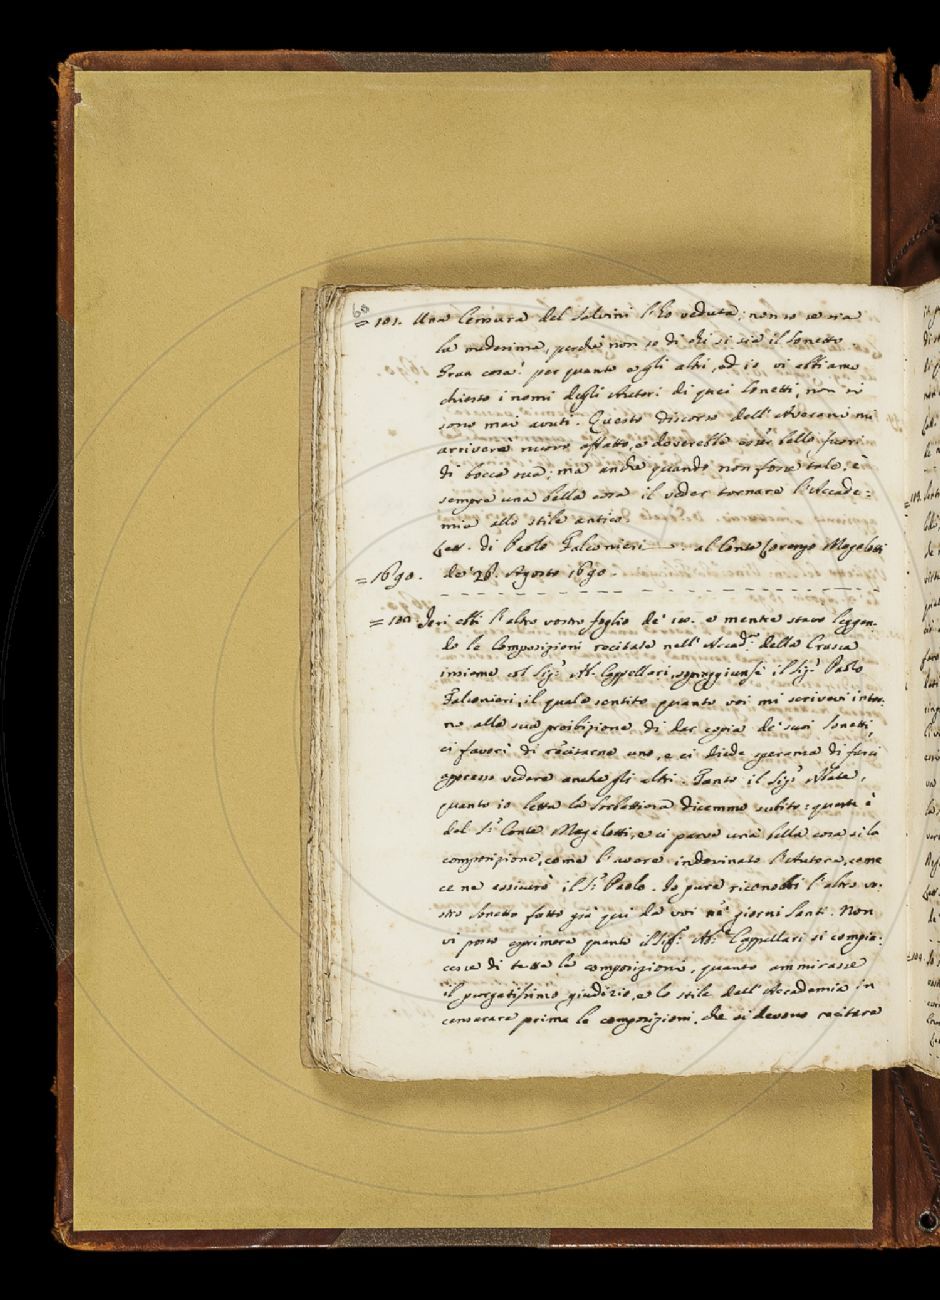 60
= 101. Una Censura del Salvini l'ho veduta; non so se sia
la medesima, perché non so di chi si sia il sonetto
Gran cosa! per quanto egli altri, ed io vi abbiamo
chiesto i nomi degli Autori di quei sonetti, non si
sono mai avuti. Questo discorso dell'Averani mi
arriverà nuovo affatto, e doverebbe esser bello fuori
di bocca sua; ma anche quando non fosse tale, è
sempre una bella cosa il veder tornare l'Accade=
mia allo stile antico.
Lett. di Paolo Falconieri al Conte Lorenzo Magalotti
= 1690. de' 26. Agosto 1690.
= 102. Ieri ebbi l'altro vostro foglio de' 10. e mentre stavo leggen-
do le Composizioni recitate nell'Accad.ª della Crusca
insieme col Sig.r Ab. Cappellari, sopraggiunse il Sig.r Paolo
Falconieri, il quale sentito quanto voi mi scrivevi intor-
no alla sua proibizione di dar copia de' suoi sonetti,
ci favorì di recitarne uno, e ci diede speranza di farci
appresso vedere anche gli altri. Tanto il Sig.r Abate,
quanto io letta la dicemmo subito: questa è
del S.r Conte Magalotti, e ci parve una bella cosa sì la
composizione, come l'avere indovinato l'Autore, come
ce ne assicurò il S.r Paolo. Io pure riconobbi l'altro vo-
stro sonetto fatto già qui da voi ne' giorni santi. Non
vi posso esprimere quanto il Sig.r Ab.e Cappellari si compia-
cesse di tutte le composizioni, quanto ammirasse
il purgatissimo giudizio, e lo stile dell'Accademia in
censurare prima le composizioni, che si devono recitare